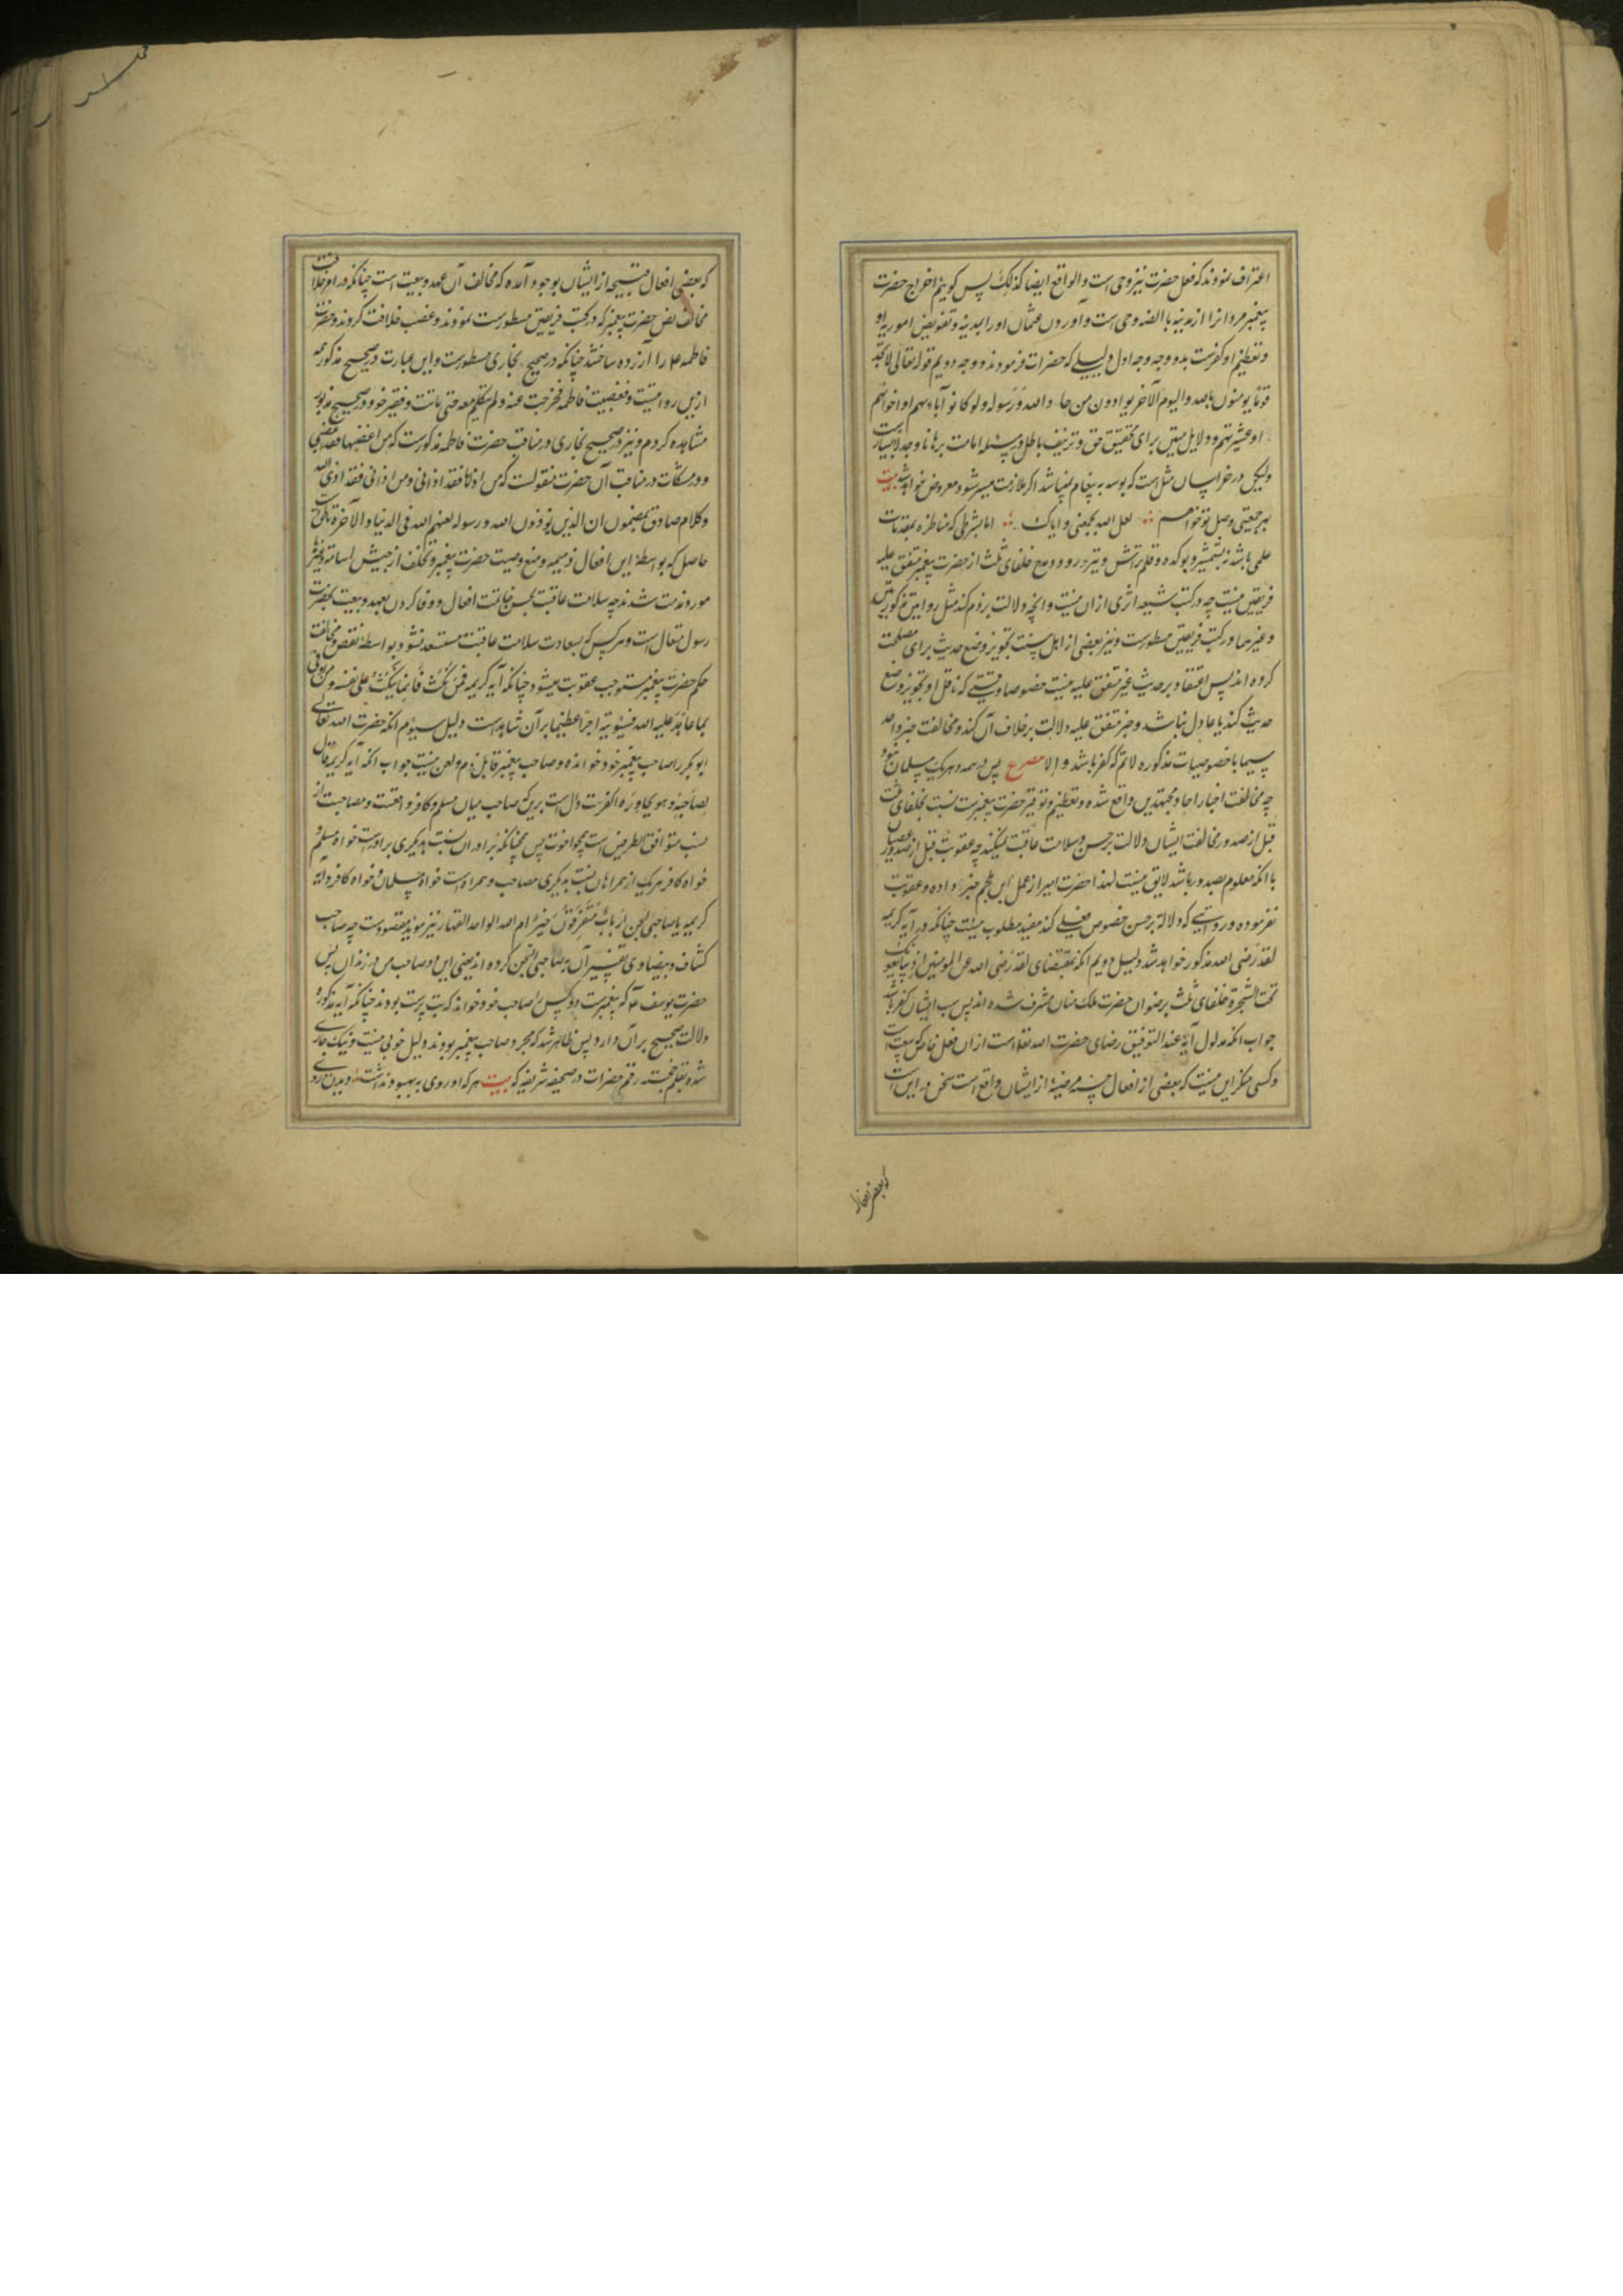 اعتراف نمودند که فعل حضرت نیز وحی است والواقع ایضا کذلک پس کوییم اخراج حضرت
پیغمبر مروانرا از مدینه بالضروحی است وآوردن عثمان اورا بمدینه وتفویض امور باو
وتعظیم او کفرست بدو وجه وجه اول دلیلی که حضرات فرمودند ووجه دویم قوله تعالی لا تجد
قوما یومنون بالله والیوم الآخر یوادون من حاد الله ورسوله ولو کانوا آباءهم او اخوانهم
او عشیرتهم ودلایل متین برای تحقیق حق وتزییف باطل در مسئله امامت برهانا وجدلا بسیارست
ولیکن در خراسان مثل است که بوسه به پیغام نمیباشد اکر ملازمت میسر شود معروض خواهد شد بیت
بهر جمعیتی وصل تو خواهم لعل الله یجمعنی وایاک اما بشرطی که مناظره بمقدمات
علمی باشد نه بشمشیر وبوکده وقلم تراش وتبر رو ودمدح خلفای ثلث از حضرت پیغمبر متفق علیه
فریقین نیست چه در کتب شیعه اثری ازان نیست وانچه دلالت برذم کند مثل روایتین مذکورتین
وغیرهما در کتب فریقین مسطورست ونیز بعضی از اهل سنت تجویز وضع حدیث برای مصلحت
کرده اند پس اعتقاد بر حدیث غیر متفق علیه نیست خصوصا وقتی که ناقل او تجویز وضع
حدیث کند یا عادل نباشد وخبر متفق علیه دلالت برخلاف آن کند ومخالفت خبر واحد
سیما با خصوصیات مذکوره لانم که کفر باشد والا مصرع پس در همه دهر یک مسلمان نبود
چه مخالفت اخبار احاد مجتهدین واقع شده وتعظیم وتوقیر حضرت پیغمبرست نسبت بخلفای ثلث
قبل از صدور مخالفت ایشان دلالت بر حسن وسلامت عاقبت نمیکند چه عقوبت قبل از صدور عصیان
با انکه معلوم بصدور باشد لایق نیست لهذا حضرت امیر از عمل ابن ملجم خبر داده وعقوبت
نفرموده وروایتی که دلالة بر حسن خصوص فعلی کند مفید مطلوب نیست چنانکه در آیه کریمه
لقد رضی الله مذکور خواهد شد دلیل دویم انکه بمقتضای لقد رضی الله عن المومنین اذ یبایعونک
تحت الشجرة خلفای ثلث برضوان حضرت ملک منان مشرف شده اند پس سب ایشان کفر باشد
جواب انکه مدلول آیه عند التوفیق رضای حضرت الله تعالی است ازان فعل خاص که بیعت است
وکسی منکر این نیست که بعضی از افعال حسنه مرضیه از ایشان واقع است سخن در این است
که بعضی افعال
که بعضی افعال قبیحه از ایشان بوجود آمده که مخالف آن عهد وبیعت است چنانکه در امر خلافت
مخالف نص حضرت پیغمبر که در کتب فریقین مسطورست نمودند وغصب خلافت کردند وحضرت
فاطمه ع را آزرده ساختند چنانکه در صحیح بخاری مسطورست واین عبارت در صحیح مذکور
ازین روایتست وفغضبت فاطمه فخرجت عنه ولم تتکلم معه حتی ماتت وفقیر خود در صحیح مزبور
مشاهده کردم ونیز در صحیح بخاری در مناقب حضرت فاطمه مذکورست که من اغضبها فقد اغضبنی
ودر مشکات در مناقب آن حضرت منقولست که من اذاها فقد اذانی ومن اذانی فقد اذی الله
وکلام صادق بمضمون ان الذین یوذون الله ورسوله لعنهم الله فی الدنیا والآخرة
حاصل که بواسطه این افعال ذمیمه ومنع وصیت حضرت پیغمبر وتخلف از جیش اسامه وغیرها
مورد مذمت شدند چه سلامت عاقبت بحسن خاتمت افعال ووفا کردن بعهد وبیعت بحضرت
رسول متعال است وهر کس که بسعادت سلامت عاقبت مستسعد نشود بواسطه نقض ومخالفت
حکم حضرت پیغمبر مستوجب عقوبت میشود چنانکه آیه کریمه فمن نکث فانما ینکث علی نفسه ومن اوفی
بما عاهد علیه الله فسیؤتیه اجرا عظیما بر آن شاهد است دلیل سیوم انکه حضرت الله تعالی
ابو بکر را صاحب پیغمبر خود خوانده وصاحب پیغمبر قابل ذم ولعن نیست جواب انکه آیه کریمه قال
لصاحبه وهو یحاوره اکفرت دال است برین که صاحب میان مسلم وکافر واقعست ومصاحبت از
نسب متوافق الطرفین است همچو اخوت پس همچنانکه برادران نسبت بدیکری برادرست خواه مسلم و
خواه کافر هریک از همراهان نسبت بدیکری مصاحب وهمراه است خواه مسلمان وخواه کافر وآیه
کریمه یا صاحبی السجن ارباب متفرقون خیر ام الله الواحد القهار نیز موید مقصودست چه صاحب
کشاف وبیضاوی تفسیر آن بصاحبی فی السجن کرده اند یعنی این دو صاحب من در زندان پس
حضرت یوسف ع که پیغمبرست دو کس را صاحب خود خواند که بت پرست بودند چنانکه آیه مذکوره
دلالت صحیح بر آن دارد پس ظاهر شد که مجرد صاحب پیغمبر بودند دلیل خوبی نیست ونیک جاری
شده بقلم خجسته رقم حضرات در صحیفه شریفه که بیت هرکه او روی به بهبود نداشت دیدن روی